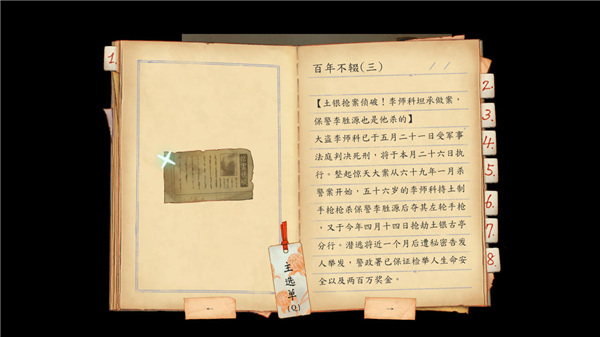 1.
百年不辍(三)
/ /
【土银抢案侦破！李师科坦承做案，
保警李胜源也是他杀的】
大盗李师科已于五月二十一日受军事
法庭判决死刑，将于本月二十六日执
行。整起惊天大案从六十九年一月杀
警案开始，五十六岁的李师科持土制
手枪枪杀保警李胜源后夺其左轮手枪
，又于今年四月十四日抢劫土银古亭
分行。潜逃将近一个月后遭秘密告发
人举发，警政署已保证检举人生命安
全以及两百万奖金。
2.
3.
4.
5.
6.
7.
8.
主选单
(Q)
←
→